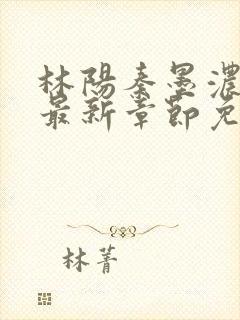 林陽秦墨濃
最新章節免
林菁